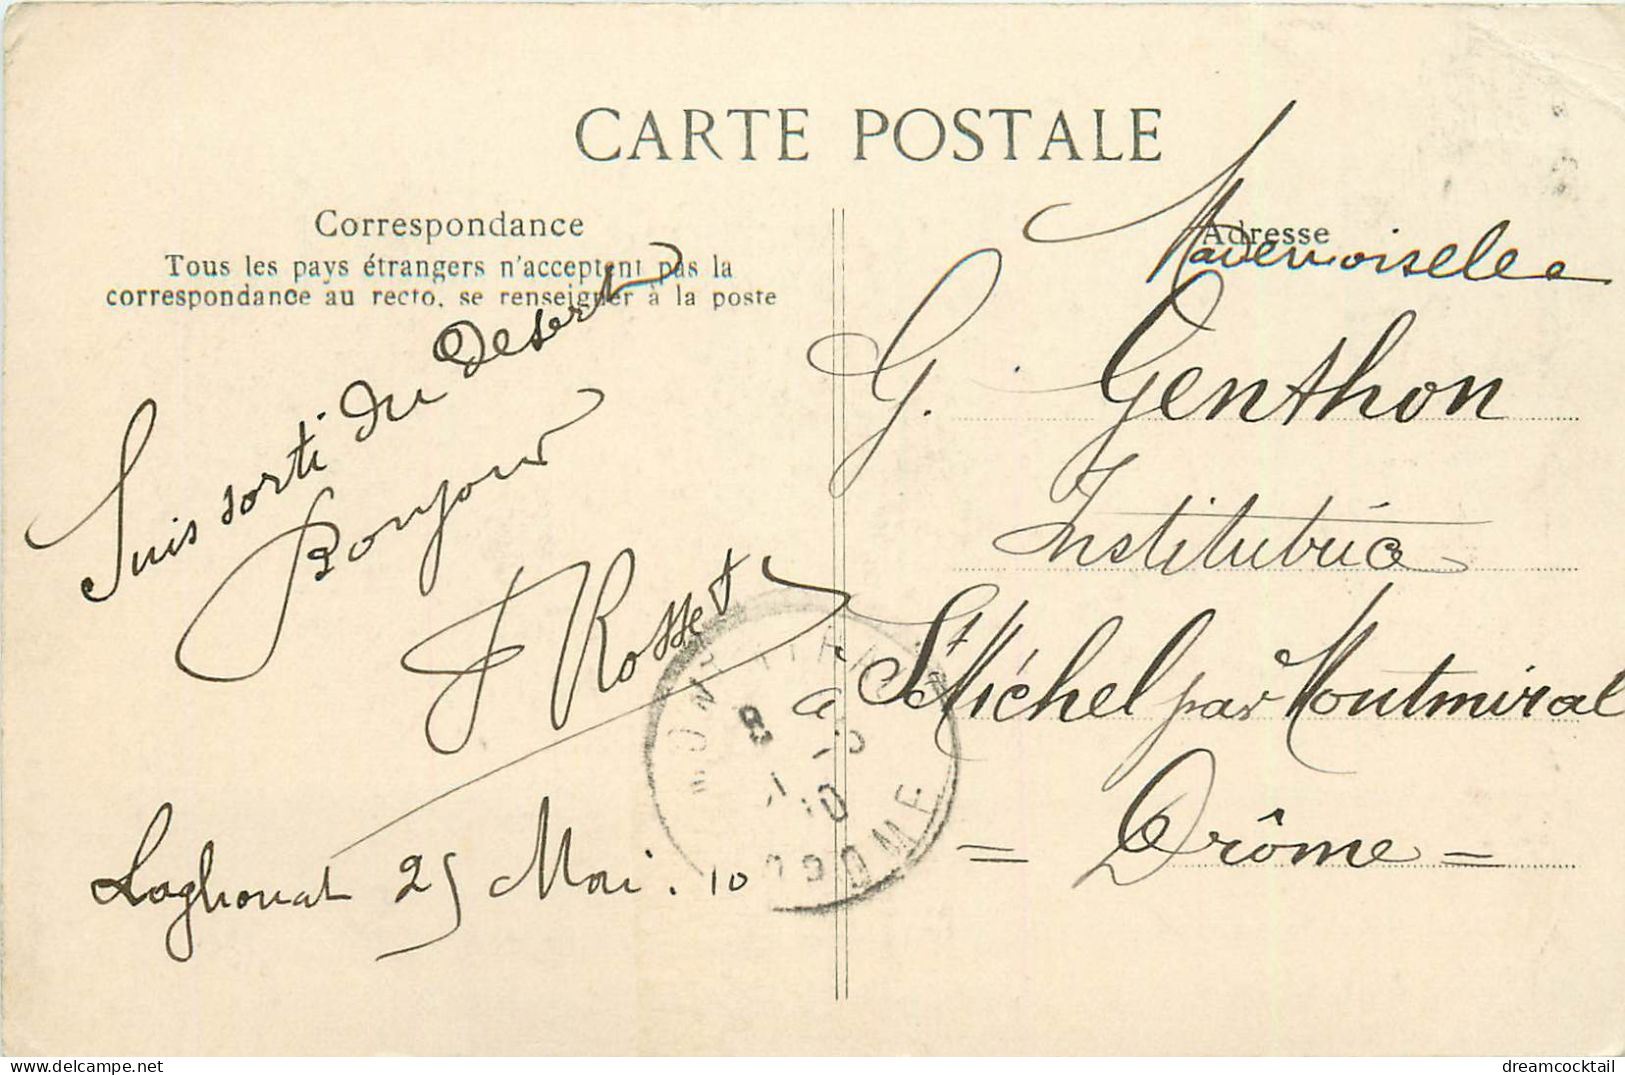 CARTE POSTALE
Correspondance
Tous les pays étrangers n'acceptent pas la
correspondance au recto, se renseigner à la poste
Suis sorti du Desert
Bonjour
Rosset
Laghouat 25 Mai. 10
Adresse
Mademoiselle
G. Genthon
Institutrice
à St Michel par Montmiral
= Drôme =
DROME
dreamcocktail